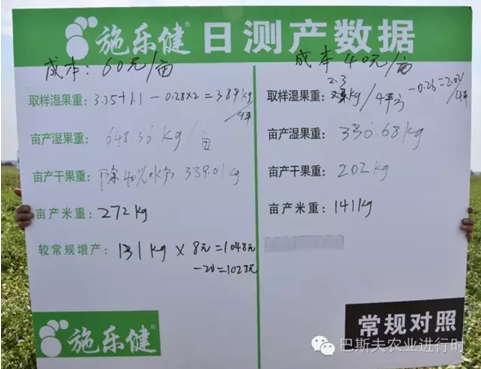 施乐健 日测产数据
成本：60元/亩
取样湿果重：3.25+1.1-0.28×2=3.89kg/4平
亩产湿果重：648.33kg/亩
亩产干果重：除40%水分 339.01kg
亩产米重：272kg
较常规增产：131kg×8元=1048元
-20=1028元
施乐健
成本 40元/亩
取样湿果重：2.3kg/4平方-0.28=2.02/4平
亩产湿果重：336.68kg
亩产干果重：202kg
亩产米重：141kg
常规对照
巴斯夫农业进行时